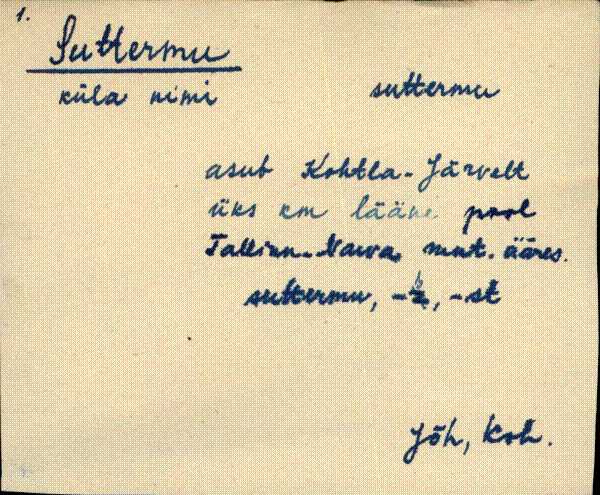 1.
Suttermu
küla nimi
suttermu
asub Kohtla-Järvelt
üks km lääne pool
Tallinn-Narva mnt. ääres.
suttermu, -st
Jõh, Koh.